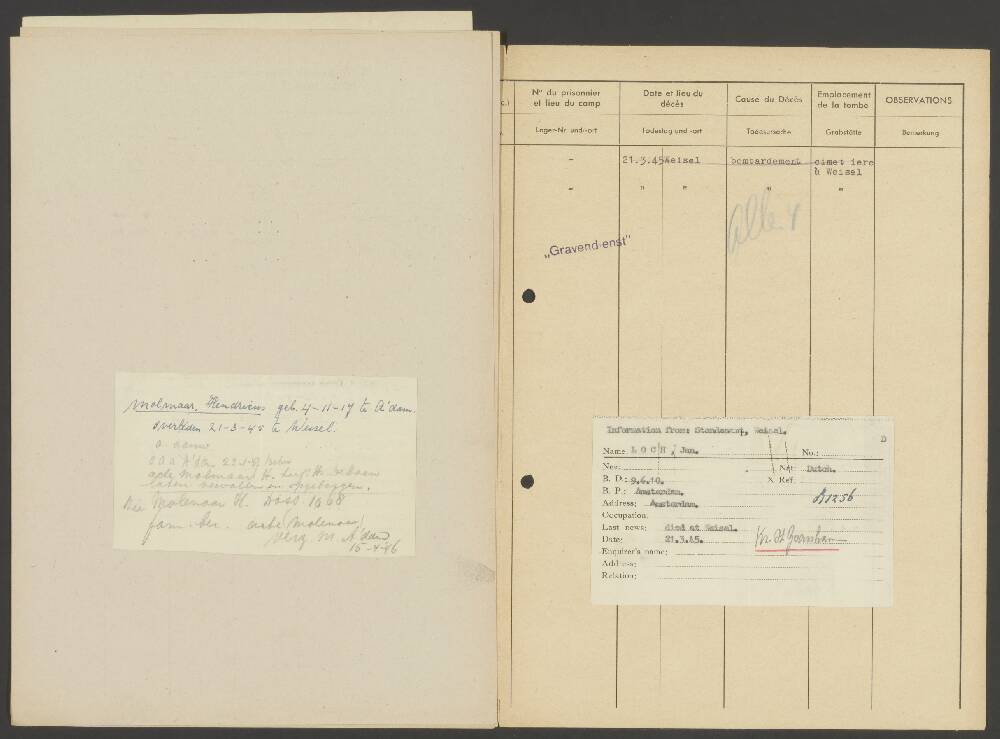 Molmaar, Hendricus geb. 4-11-17 te A'dam.
overleden 21-3-45 te Weisel.
Zie Molenaar H. Doss. 1068
fam. ber. acte Molenaar
verz. n. A'dam
15-4-46
N° du prisonnier et lieu du camp
Date et lieu du décès
Cause du Décès
Emplacement de la tombe
OBSERVATIONS
Lager-Nr und -ort
Todestag und -ort
Todesursache
Grabstätte
Bemerkung
- 21.3.45 Weisel bombardement cimetiere
à Weisel
- " " " "
Alle 4
„Gravendienst"
Information from: Standesamt, Weisel.
D
Name L O C H , Jan. No.:
Nee: Nat: Dutch.
B. D.: 9.6.10. X Ref:
B. P.: Amsterdam.
A1256
Address: Amsterdam.
Occupation:
Last news: died at Weisel.
Date: 21.3.45.
Kr. St Goarshsn
Enquirer's name:
Address:
Relation: